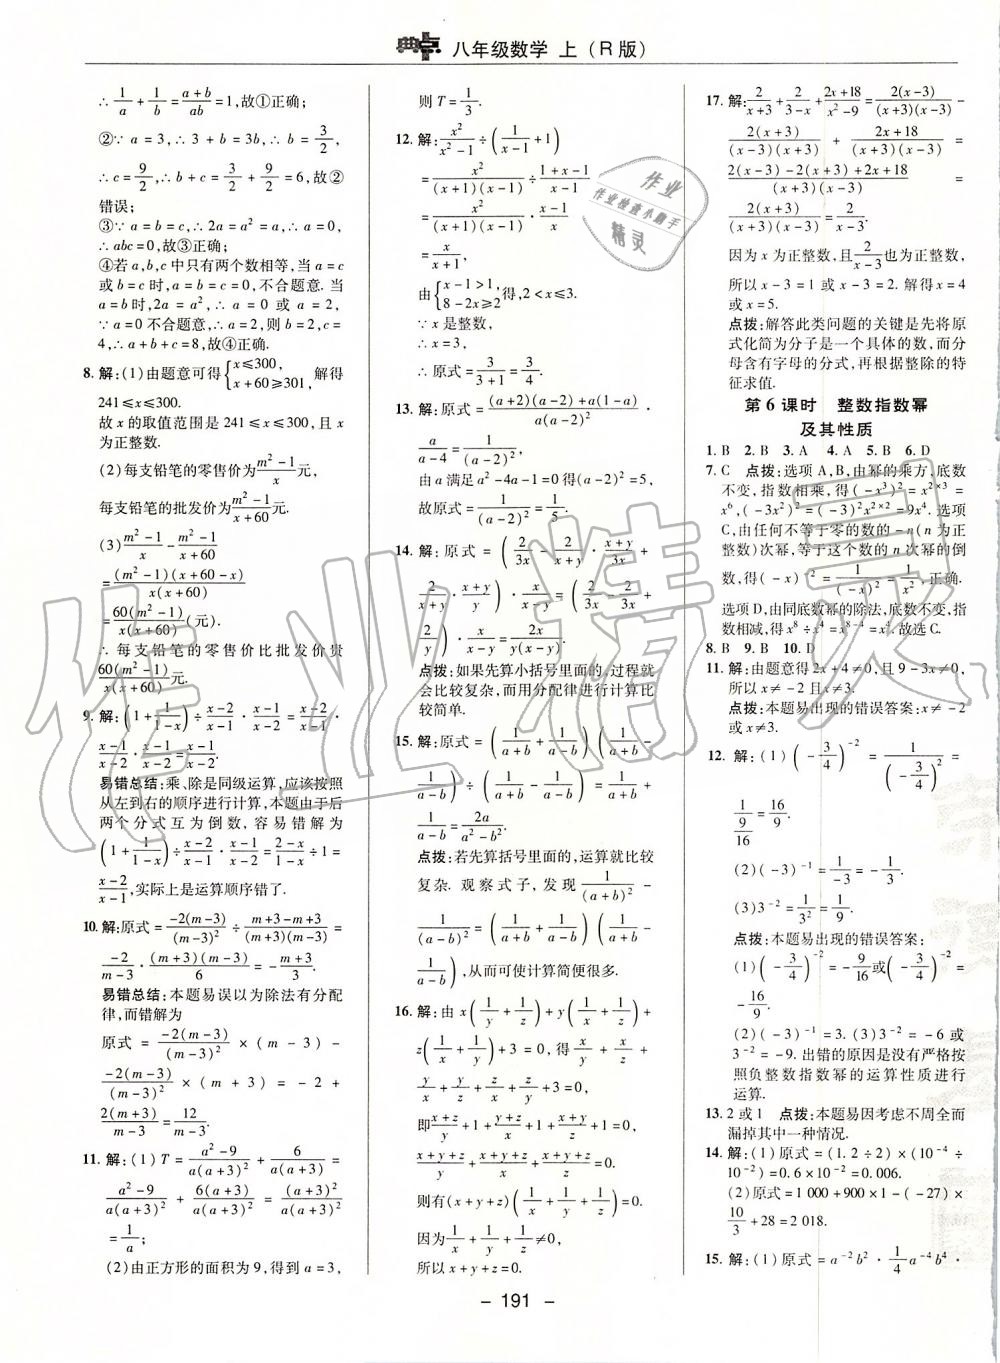 典点 八年级数学 上（R版）
∴ 1/a + 1/b = (a+b)/(ab) = 1,故①正确;
②∵ a=3,∴ 3+b=3b,∴ b = 3/2,
∴c = 9/2,∴b+c = 3/2 + 9/2 = 6,故②
错误;
③∵a=b=c,∴2a=a²=a,∴a=0,
∴abc=0,故③正确;
④若a,b,c中只有两个数相等,当a=c
或b=c时,a=0,b=0,不合题意.当
a=b时,2a=a²,∴a=0 或 a=2,
∵a=0不合题意,∴a=2,则b=2,c=
4,∴a+b+c=8,故④正确.
8. 解:(1)由题意可得{x≤300, x+60≥301,解得
241≤x≤300.
故x的取值范围是241≤x≤300,且x
为正整数.
(2)每支铅笔的零售价为(m²-1)/x元,
每支铅笔的批发价为(m²-1)/(x+60)元.
(3)(m²-1)/x - (m²-1)/(x+60)
= (m²-1)(x+60-x)/(x(x+60))
= 60(m²-1)/(x(x+60))(元).
∴ 每支铅笔的零售价比批发价贵
60(m²-1)/(x(x+60))元.
9. 解:(1+1/(1-x))÷(x-2)/(x-1)·(x-2)/(x-1) = (x-2)/(x-1)·
(x-1)/(x-2)·(x-2)/(x-1) = (x-2)/(x-1).
易错总结:乘、除是同级运算,应该按照
从左到右的顺序进行计算,本题由于后
两个分式互为倒数,容易错解为
(1+1/(1-x))÷(x-2)/(x-1)·(x-1)/(x-2) = (x-2)/(x-1)÷1=
(x-2)/(x-1),实际上是运算顺序错了.
10. 解:原式 = -2(m-3)/(m-3)² ÷ (m+3-m+3)/((m+3)(m-3)) =
-2/(m-3)·(m+3)(m-3)/6 = -(m+3)/3.
易错总结:本题易误以为除法有分配
律,而错解为
原式 = -2(m-3)/(m-3)² × (m-3) -
-2(m-3)/(m-3)² × (m+3) = -2 +
2(m+3)/(m-3) = 12/(m-3).
11. 解:(1) T = (a²-9)/(a(a+3)²) + 6/(a(a+3)) =
(a²-9)/(a(a+3)²) + 6(a+3)/(a(a+3)²) = (a+3)²/(a(a+3)²) =
1/a;
(2)由正方形的面积为9,得到a=3,
则T = 1/3.
12. 解:x²/(x²-1)÷(1/(x-1)+1)
= x²/((x+1)(x-1))÷(1+x-1)/(x-1)
= x²/((x+1)(x-1))·(x-1)/x
= x/(x+1),
由{x-1>1, 8-2x≥2得,2<x≤3.
∵x是整数,
∴x=3.
∴原式 = 3/(3+1) = 3/4.
13. 解:原式 = ((a+2)(a-2)+a(1-a))/(a(a-2)²)·
a/(a-4) = 1/(a-2)²,
由a满足a²-4a-1=0得(a-2)²=5,
故原式 = 1/(a-2)² = 1/5.
14. 解:原式 = (2/(3x) - 2/(x+y)·(x+y)/(3x) +
2/(x+y)·(x+y)/y)·(x-y)/x = (2/(3x) - 2/(3x) +
2/y)·x/(x-y) = 2x/(y(x-y)).
点拨:如果先算小括号里面的,过程就
会比较复杂,而用分配律进行计算比
较简单.
15. 解:原式 = (1/(a+b) + 1/(a-b))(1/(a+b) -
1/(a-b))÷(1/(a+b) - 1/(a-b)) = 1/(a+b) +
1/(a-b) = 2a/(a²-b²).
点拨:若先算括号里面的,运算就比较
复杂.观察式子,发现1/(a+b)² -
1/(a-b)² = (1/(a+b) + 1/(a-b))(1/(a+b) -
1/(a-b)),从而可使计算简便很多.
16. 解:由x(1/y+1/z)+y(1/x+1/z)+
z(1/x+1/y)+3=0,得 x/y + x/z +
y/x + y/z + z/x + z/y + 3 = 0,
即(x+z)/y+1+(y+z)/x+1+(x+y)/z+1=0.
(x+y+z)/y + (x+y+z)/x + (x+y+z)/z = 0.
则有(x+y+z)(1/x+1/y+1/z)=0.
因为1/x+1/y+1/z≠0,
所以x+y+z=0.
17. 解:2/(x+3) + 2/(3-x) + (2x+18)/(x²-9) = 2(x-3)/((x+3)(x-3)) -
2(x+3)/((x-3)(x+3)) + (2x+18)/((x+3)(x-3)) =
(2(x-3)-2(x+3)+2x+18)/((x+3)(x-3)) =
2(x+3)/((x-3)(x+3)) = 2/(x-3).
因为x为正整数,且2/(x-3)也为正整数,
所以x-3=1或x-3=2.解得x=4
或x=5.
点拨:解答此类问题的关键是先将原
式化简为分子是一个具体的数,而分
母含有字母的分式,再根据整除的特
征求值.
第6课时 整数指数幂
及其性质
1. B 2. B 3. A 4. A 5. B 6. D
7. C 点拨:选项A,B,由幂的乘方,底数
不变,指数相乘,得(-x³)²=x²ˣ³=
x⁶,(-3x²)²=(-3)²x²ˣ²=9x⁴.选项
C,由任何不等于零的数的-n(n为正
整数)次幂,等于这个数的n次幂的倒
数,得(-x)⁻² = 1/(-x)² = 1/x²,正确.
选项D,由同底数幂的除法,底数不变,指
数相减,得x⁸÷x⁴=x⁸⁻⁴=x⁴.故选C.
8. B 9. B 10. D
11. 解:由题意得2x+4≠0,且9-3x≠0,
所以x≠-2且x≠3.
点拨:本题易出现的错误答案:x≠-2
或x≠3.
12. 解:(1)(-3/4)⁻² = 1/(-3/4)² =
1/(9/16) = 16/9.
(2)(-3)⁻¹ = 1/(-3) = -1/3.
(3)3⁻² = 1/3² = 1/9.
点拨:本题易出现的错误答案:
(1)(-3/4)⁻² = -9/16或(-3/4)⁻² =
-16/9.
(2)(-3)⁻¹=3.(3)3⁻²=-6或
3⁻²=-9.出错的原因是没有严格按
照负整数指数幂的运算性质进行
运算.
13. 2或1 点拨:本题易因考虑不周全而
漏掉其中一种情况.
14. 解:(1)原式=(1.2÷2)×(10⁻⁴÷
10⁻²)=0.6×10⁻²=0.006.
(2)原式=1 000+900×1-(-27)×
10/3+28=2 018.
15. 解:(1)原式=a⁻²b²·1/4 a⁻⁴b⁴·
- 191 -
作业
作业检查小助手
精灵
作业精灵